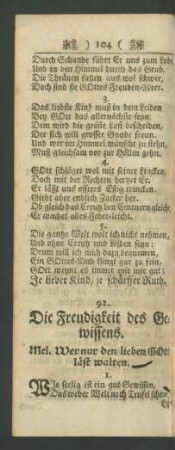 104
Durch Schande führt Er uns zum Lob,
Und in den Himmel durch das Grab.
Die Thränen fallen uns wol schwer,
Doch sind sie GOttes Freuden-Meer.
3.
Das liebste Kind muß in dem Leiden
Bey GOtt das allernächste seyn:
Dem wird die größte Last bescheiden,
Der sich will grosser Gnade freun.
Und wer im Himmel wünscht zu stehn,
Muß gleichsam vor zur Höllen gehn.
4.
GOtt schläget wol mit seiner Lincken,
Doch mit der Rechten hertzet Er.
Er läßt uns öffters Essig trincken,
Giebt aber endlich Zucker her.
Ob gleich das Creutz den Centnern gleicht,
Er machet alles Feder-leicht.
5.
Die gantze Welt wolt ich nicht nehmen,
Und ohne Creutz und Leiden seyn:
Drum will ich mich darzu bequemen,
Ein GOttes-Kind stimmt gar zu fein.
GOtt meynt es immer mit mir gut:
Je lieber Kind, je schärffer Ruth.
92.
Die Freudigkeit des Ge-
wissens.
Mel. Wer nur den lieben GOtt
läst walten.
1.
Wie seelig ist ein gut Gewissen,
Das weder Welt noch Teufel